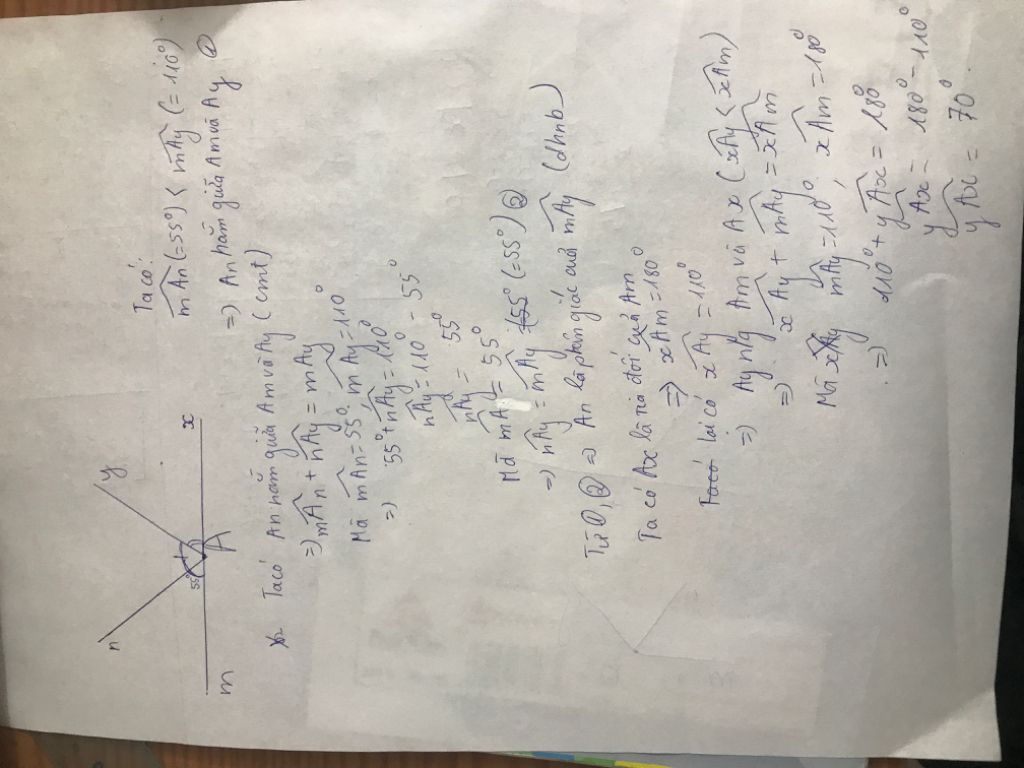 n
y
55°
m
A
x
Ta có:
mAn (=55°) < mAy (=110°)
=) An nằm giữa Am và Ay ①
Ta có An nằm giữa Am và Ay (cmt)
=) mAn + nAy = mAy
Mà mAn = 55°, mAy = 110°
=) 55° + nAy = 110°
nAy = 110° - 55°
nAy = 55°
Mà mA = 55°
=) nAy = mAy (55° (=55°) ②
Từ ①, ② =) An là phân giác của mAy (dhnb)
Ta có Ax là tia đối của Am
=) xAm = 180°
Ta có lại có xAy = 110°
=) Ay nằg Am và Ax (xAy < xAm)
=) xAy + mAy = xAm
Mà xAy mAy = 110°, xAm = 180°
=) 110° + yAx = 180°
yAx = 180° - 110°
yAx = 70°.